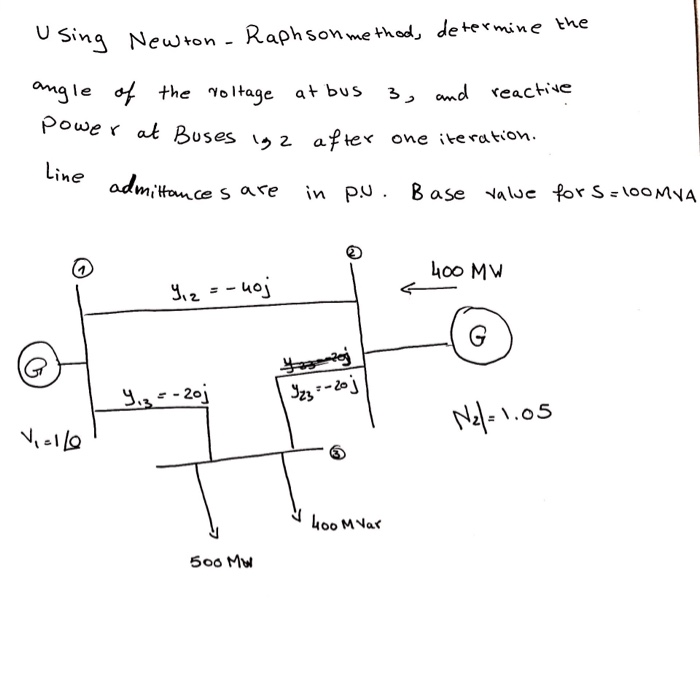 Using Newton-Raphson method, determine the
angle of the voltage at bus 3, and reactive
power at Buses 1,2 after one iteration.
Line admittances are in p.U. Base value for S=100MVA
① ②
400 MW
y12 = -40j
G
G
y23=-20j
y13 = -20j
|V2|=1.05
V1=1/0
③
400 MVar
500 MW